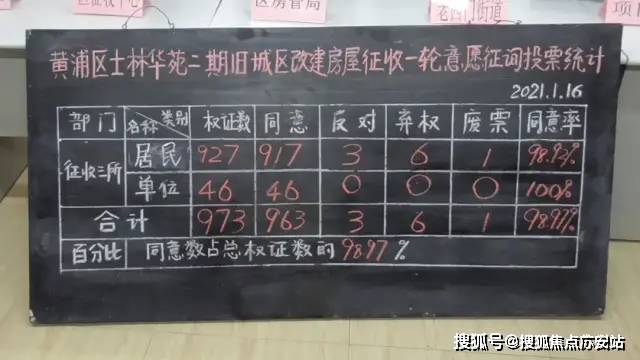 区征收中心
区房管局
老西门街道
项目
黄浦区士林华苑二期旧城区改建房屋征收一轮意愿征询投票统计
2021.1.16
部门 名称 类别 权证数 同意 反对 弃权 废票 同意率
征收三所 居民 927 917 3 6 1 98.92%
单位 46 46 0 0 0 100%
合计 973 963 3 6 1 98.97%
百分比 同意数占总权证数的98.97%
搜狐号@搜狐焦点六安站